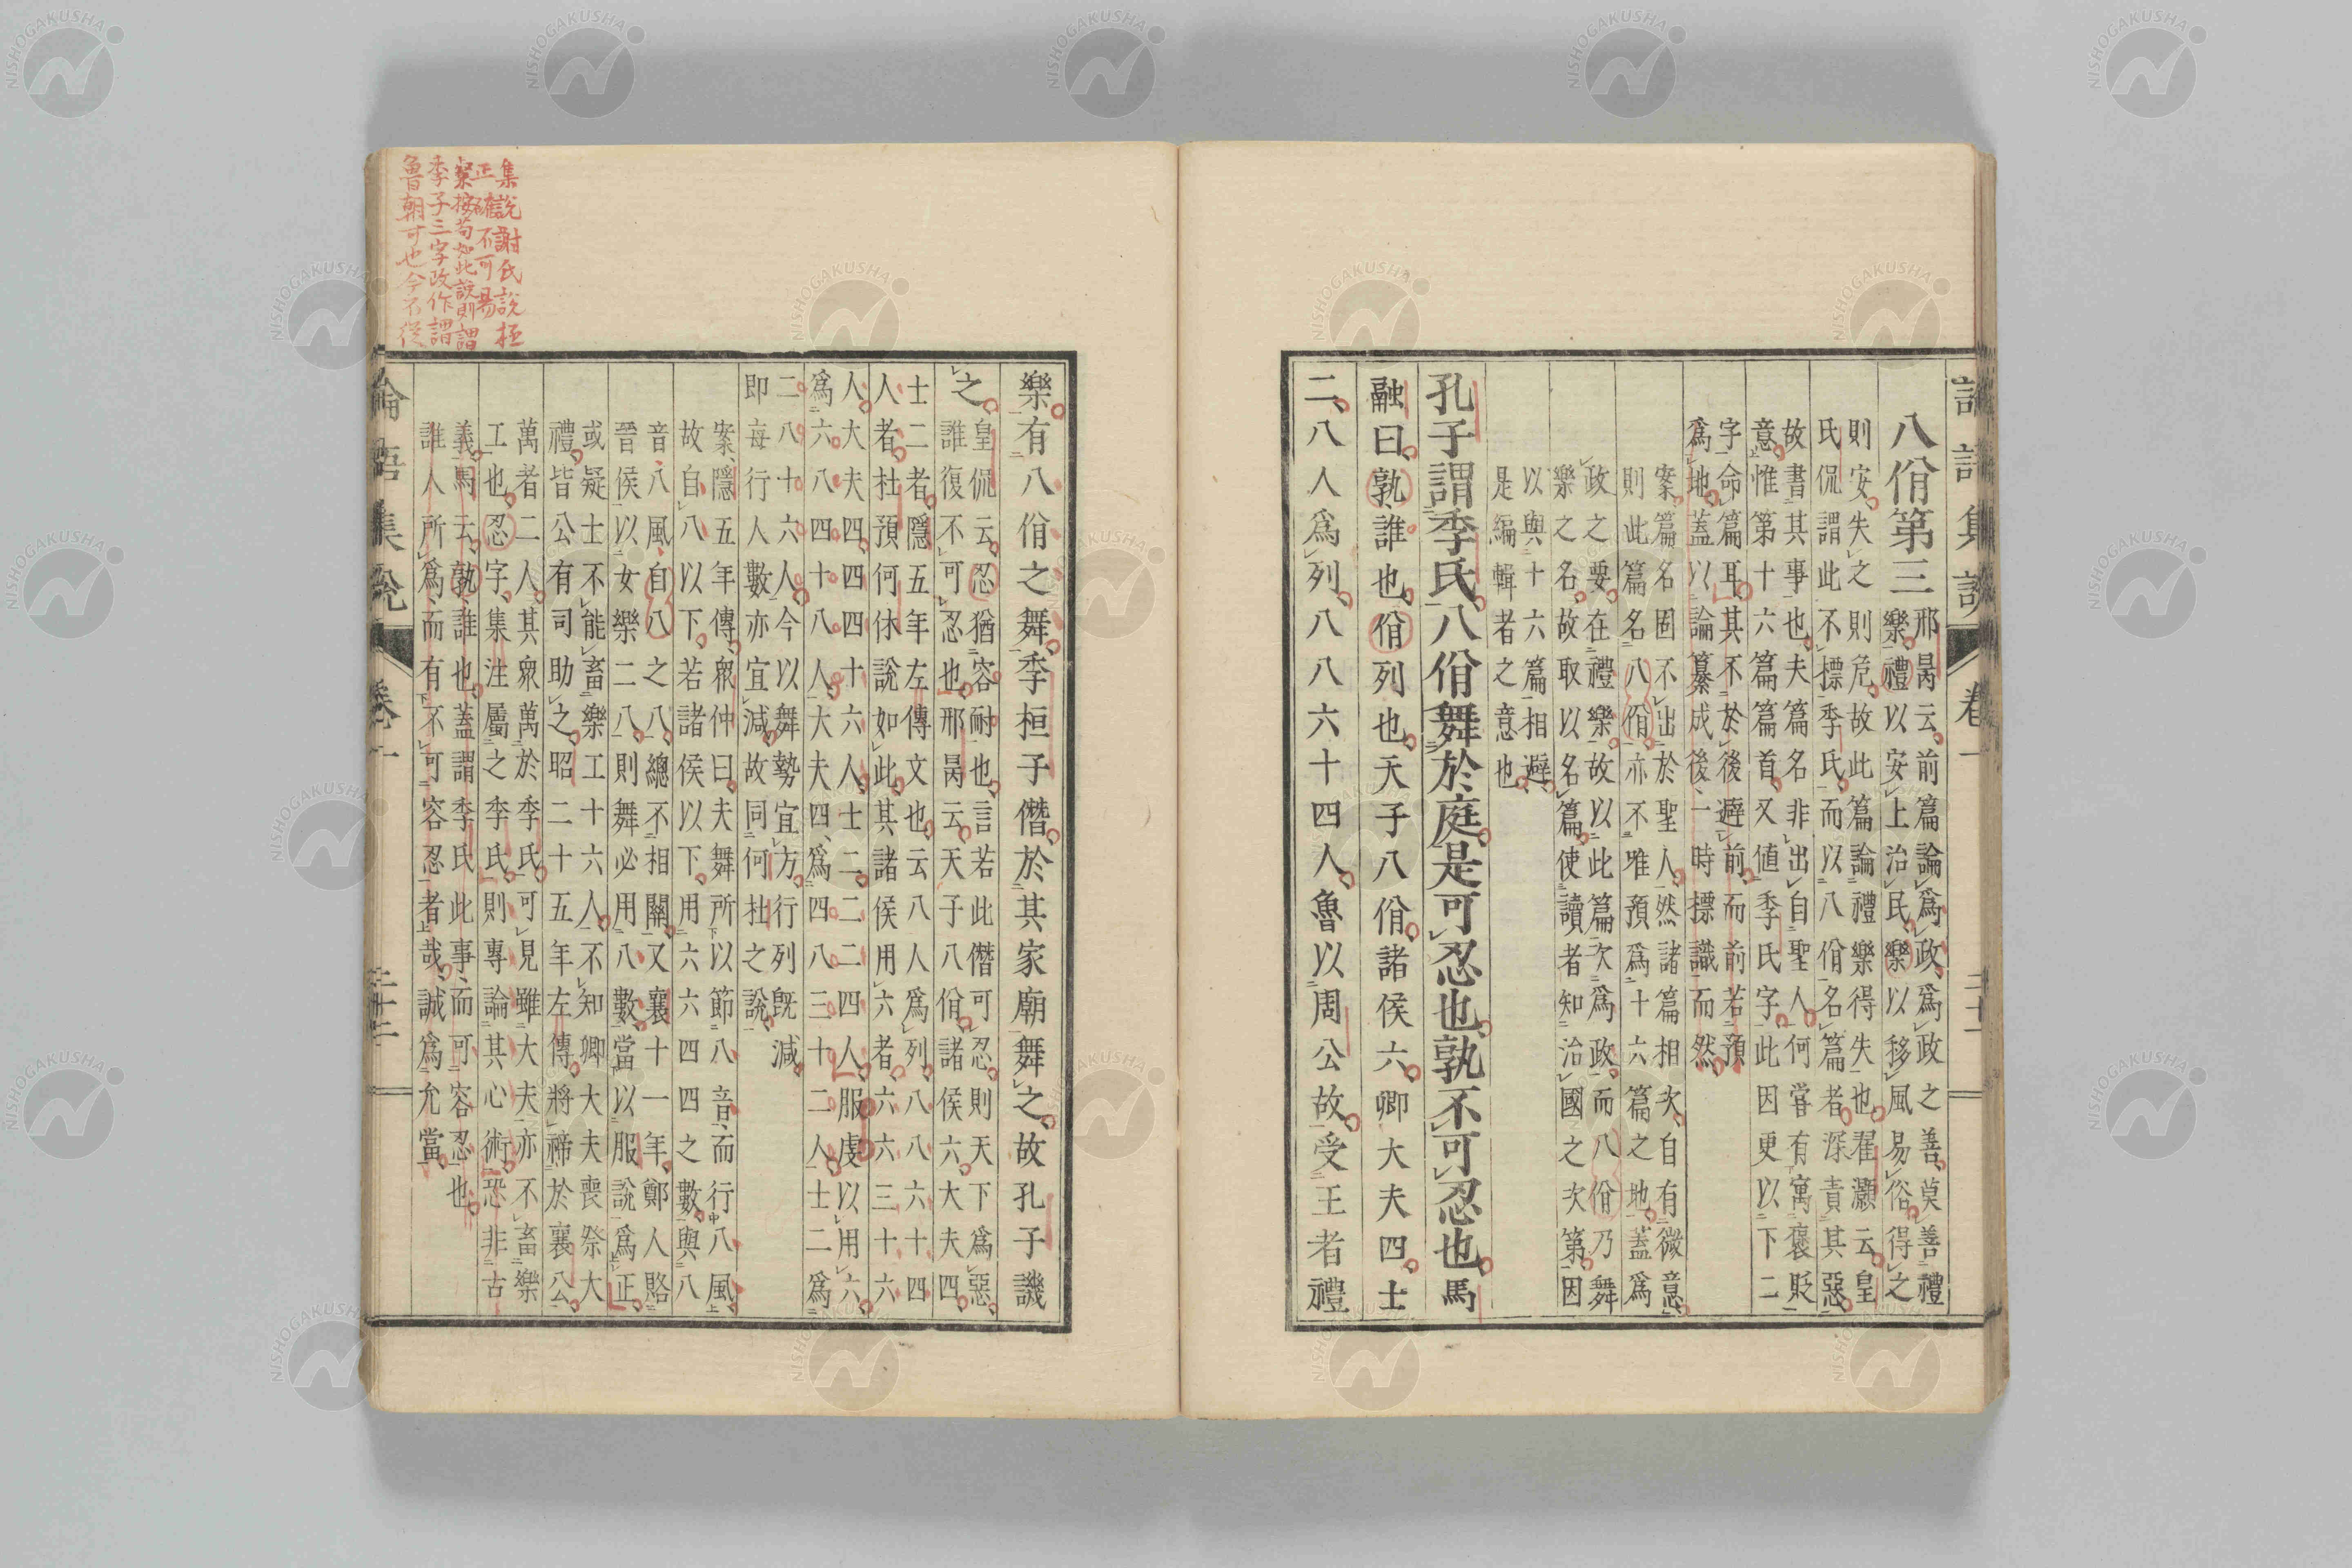 八佾第三
邢昺云、前篇論爲政、爲政之善、莫善禮
樂、禮以安上治民、樂以移風易俗、得之
則安、失之則危、故此篇論禮樂得失也、翟灝云、皇
氏侃謂此不標季氏、而以八佾名篇者、深責其惡、
故書其事也、夫篇名非出自聖人、何嘗有寓褒貶
意、惟第十六篇篇首、又値季氏字、此因更以下二
字命篇耳、其不於後避前、而前若預
爲地、蓋以論纂成後、一時標識而然、
案、篇名固不出於聖人、然諸篇相次、自有微意、
則此篇名八佾、亦不唯預爲十六篇之地、蓋爲
政之要、在禮樂、故以此篇次爲政、而八佾乃舞
樂之名、故取以名篇、使讀者知治國之次第、因
以與十六篇相避、
是編輯者之意也、
孔子謂季氏、八佾舞於庭、是可忍也、孰不可忍也、馬
融曰、孰、誰也、佾列也、天子八佾、諸侯六、卿大夫四、士
二、八人爲列、八八六十四人、魯以周公故、受王者禮
樂、有八佾之舞、季桓子僭於其家廟舞之、故孔子譏
之、
皇侃云、忍猶容耐也、言若此僭可忍、則天下爲惡、
誰復不可忍也、邢昺云、天子八佾、諸侯六、大夫四、
士二者、隱五年左傳文也、云八人爲列、八八六十四
人者、杜預何休說如此、其諸侯用六者、六六三十六
人、大夫四、四四十六人、士二、二二四人、服虔以用六、
爲六八四十八人、大夫四、爲四八三十二人、士二爲
二八十六人、今以舞勢宜方、行列既減、
即每行人數亦宜減、故同何杜之說、
案、隱五年傳、衆仲曰、夫舞所以節八音、而行八風、
故自八以下、若諸侯以下、用六六四四之數、與八
音八風、自八之八、總不相關、又襄十一年、鄭人賂
晉侯以女樂二八、則舞必用八數、當以服說爲正、
或疑士不能畜樂工十六人、不知卿大夫喪祭大
禮、皆公有司助之、昭二十五年左傳、將禘於襄公、
萬者二人、其衆萬於季氏、可見雖大夫亦不畜樂
工也、忍字、集注屬之季氏、則專論其心術、恐非古
義、馬云、孰、誰也、蓋謂季氏此事、而可容忍也、
誰人所爲而有不可容忍者哉、誠爲允當、
論語集說 卷一
集說謝氏說極
正確不可易
案按苟如此說則謂
季子三字改作謂
魯朝可也今不從